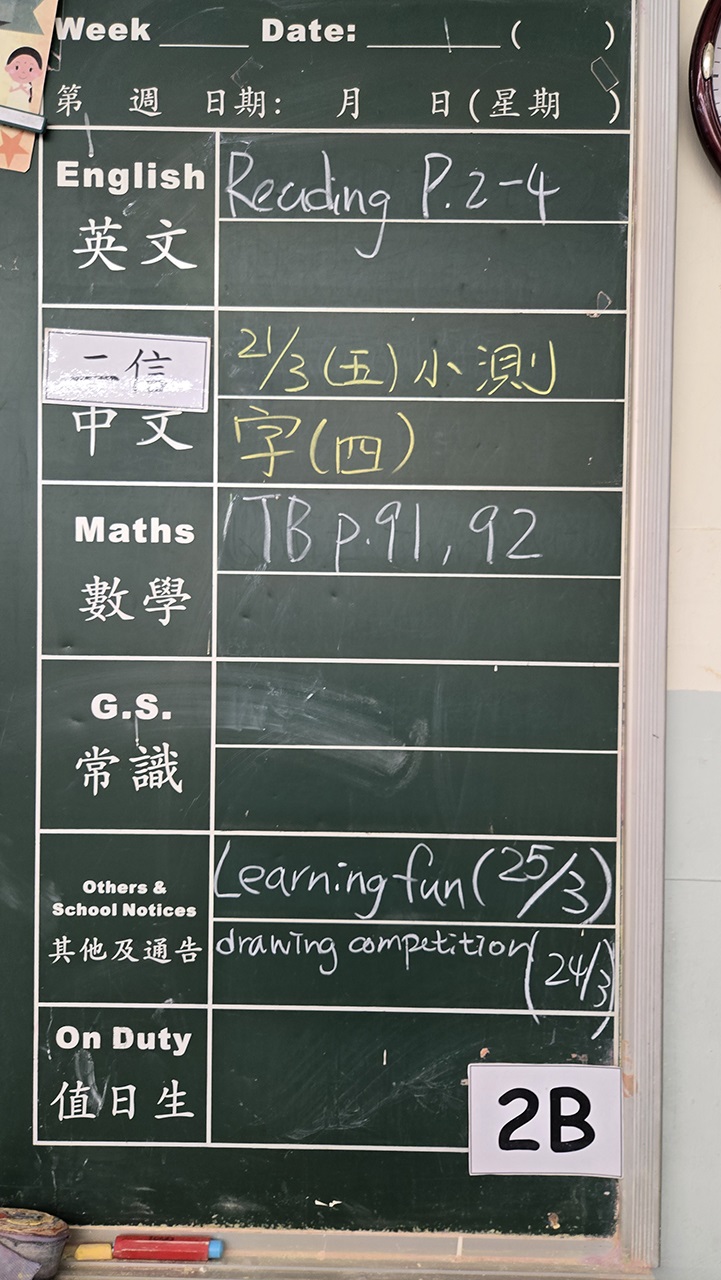 Week Date: ( )
第 週 日期: 月 日(星期 )
English
英文
Reading P.2-4
二信
中文
21/3(五)小測
字(四)
Maths
數學
TB p.91, 92
G.S.
常識
Others &
School Notices
其他及通告
Learning fun(25/3)
drawing competition(24/3)
On Duty
值日生
2B